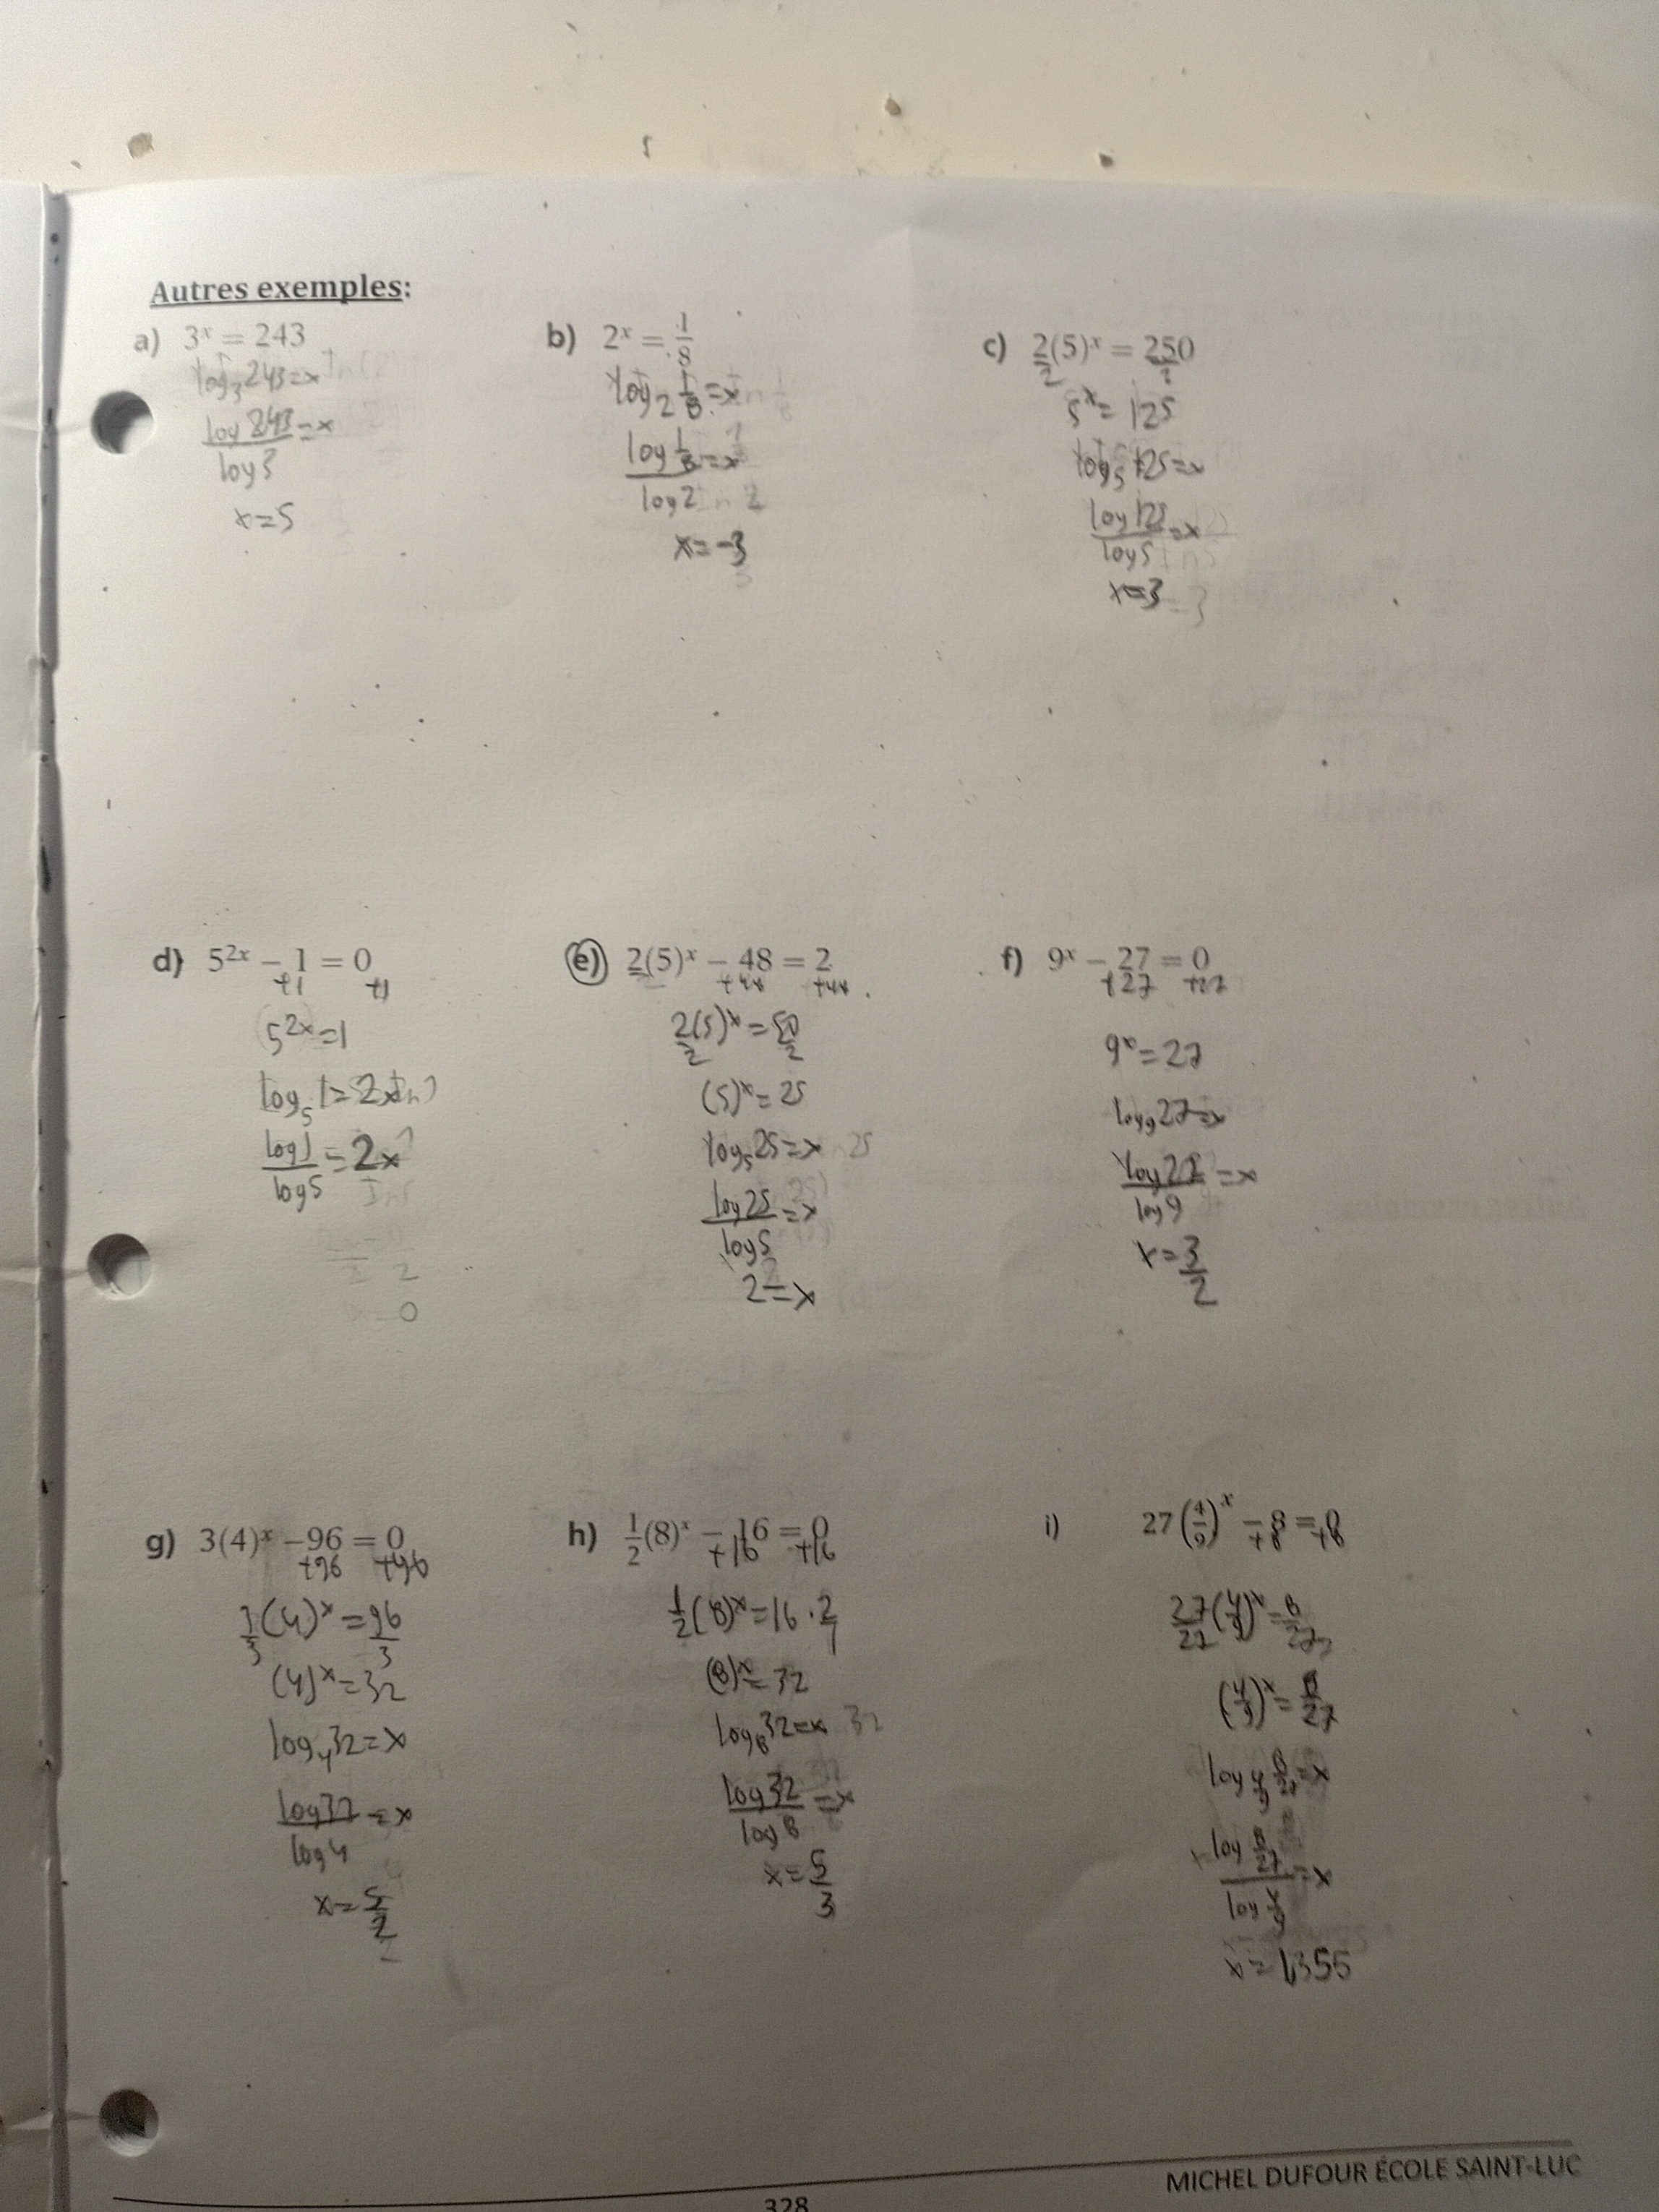 Autres exemples:
a) 3ˣ = 243
log₃243=x
log 243/log 3 =x
x=5
b) 2ˣ = 1/8
log₂ 1/8 =x
log 1/8 / log 2 =x
x=-3
c) 2(5)ˣ = 250
2 2
5ˣ= 125
log₅125=x
log 125/log 5 =x
x=3
d) 5²ˣ − 1 = 0
+1 +1
5²ˣ=1
log₅1=2x
log 1/log 5 =2x
2
0
e) 2(5)ˣ − 48 = 2
+48 +48
2(5)ˣ/2 = 50/2
(5)ˣ= 25
log₅25=x
log 25/log 5 =x
2=x
f) 9ˣ − 27 = 0
+27 +27
9ˣ=27
log₉27=x
log 27/log 9 =x
x=3/2
g) 3(4)ˣ −96 = 0
+96 +96
3/3(4)ˣ=96/3
(4)ˣ=32
log₄32=x
log 32/log 4 =x
x=5/2
h) 1/2(8)ˣ − 16 = 0
+16 +16
1/2(8)ˣ=16·2/1
(8)ˣ= 32
log₈32=x
log 32/log 8 =x
x=5/3
i) 27(4/9)ˣ − 8 = 0
+8 +8
27/27(4/9)ˣ=8/27
(4/9)ˣ=8/27
log 4/9 8/27=x
log 8/27 / log 4/9 =x
MICHEL DUFOUR ÉCOLE SAINT-LUC
328